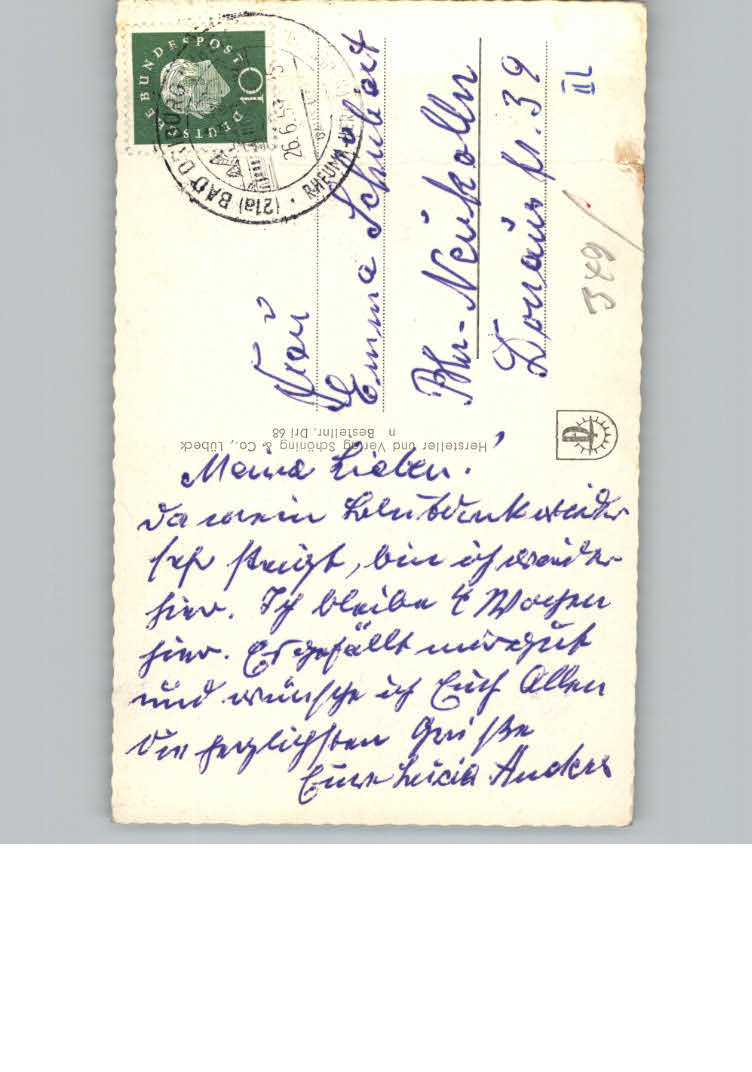 Meine Lieben!
Da mein Blutdruck wieder
sehr steigt, bin ich wieder
hier. Ich bleibe 4 Wochen
hier. Es gefällt mir gut
und wünsche ich Euch Allen
die herzlichsten Grüße
Eure Lucia Anders
Frau
Emma Schubert
Bln-Neukölln
Donaustr. 39
II L
349/
Hersteller und Verlag Schöning & Co., Lübeck
n Bestellnr. Dri 68
DEUTSCHE BUNDESPOST
10
(21a) BAD DRIBURG
26.6.59
RHEUMA